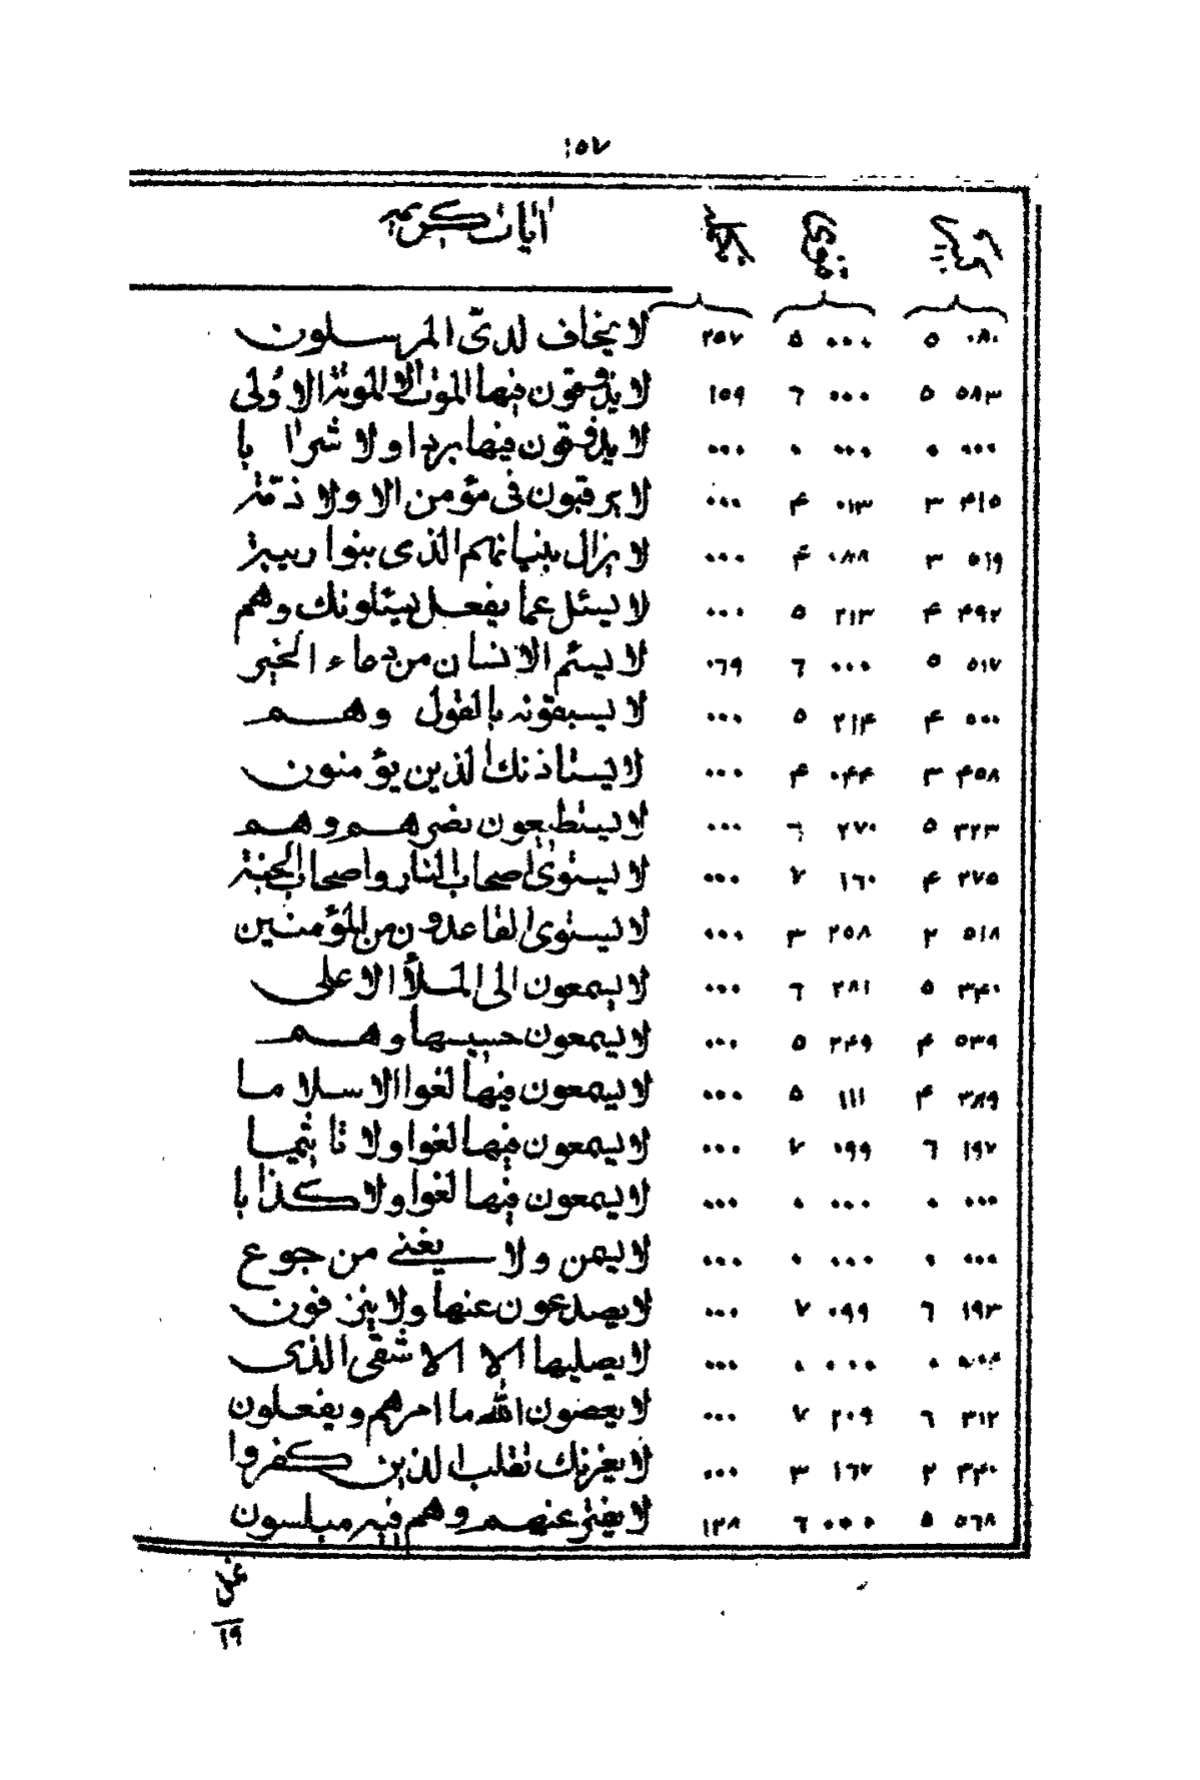 ١٥٧
اٰيات كريمه
٠٨٠ ٥ ٠٠٠ ٥ ٢٥٧ لا يخاف لدىّ المرسلون
٥٨٣ ٥ ٠٠٠ ٦ ١٥٩ لا يذوقون فيها الموت الا الموتة الاولى
٠٠٠ ٠ ٠٠٠ ٠ ٠٠٠ لا يذوقون فيها بردا ولا شرابا
۴١٥ ٣ ٠١٣ ۴ ٠٠٠ لا يرقبون فى مؤمن الا ولا ذمّة
٥١٩ ٣ ٠٨٨ ۴ ٠٠٠ لا يزال بنيانهم الذى بنوا ريبة
۴٩٢ ۴ ٢١٣ ٥ ٠٠٠ لا يسئل عما يفعل يسئلونك وهم
٥١٧ ٥ ٠٠٠ ٦ ٠٦٩ لا يسئم الانسان من دعاء الخير
٥٠٠ ۴ ٢١۴ ٥ ٠٠٠ لا يسبقونه بالقول وهم
۴٥٨ ٣ ٠۴۴ ۴ ٠٠٠ لا يستاذنك الذين يؤمنون
٣٢٣ ٥ ٢٧٠ ٦ ٠٠٠ لا يستطيعون نصرهم وهم
٢٧٥ ۴ ١٦٠ ٧ ٠٠٠ لا يستوى اصحاب النار واصحاب الجنة
٥١٨ ٢ ٢٥٨ ٣ ٠٠٠ لا يستوى القاعدون من المؤمنين
٣۴٠ ٥ ٢٨١ ٦ ٠٠٠ لا يسمعون الى الملأ الاعلى
٥٣٩ ۴ ٢۴٩ ٥ ٠٠٠ لا يسمعون حسيسها وهم
٣٨٩ ۴ ١١١ ٥ ٠٠٠ لا يسمعون فيها لغوا الا سلاما
١٩٢ ٦ ٠٩٩ ٧ ٠٠٠ لا يسمعون فيها لغوا ولا تاثيما
٠٠٠ ٠ ٠٠٠ ٠ ٠٠٠ لا يسمعون فيها لغوا ولا كذابا
٠٠٠ ٠ ٠٠٠ ٠ ٠٠٠ لا يسمن ولا يغنى من جوع
١٩٣ ٦ ٠٩٩ ٧ ٠٠٠ لا يصدعون عنها ولا ينزفون
٠٠٠ ٠ ٠٠٠ ٠ ٠٠٠ لا يصليها الا الاشقى الذى
٣١٢ ٦ ٢٠٩ ٧ ٠٠٠ لا يعصون الله ما امرهم ويفعلون
٣۴٠ ٢ ١٦٧ ٣ ٠٠٠ لا يغرنك تقلب الذين كفروا
٥٦٨ ٥ ٠٠٠ ٦ ١٢٨ لا يفتر عنهم وهم فيه مبلسون
١٩